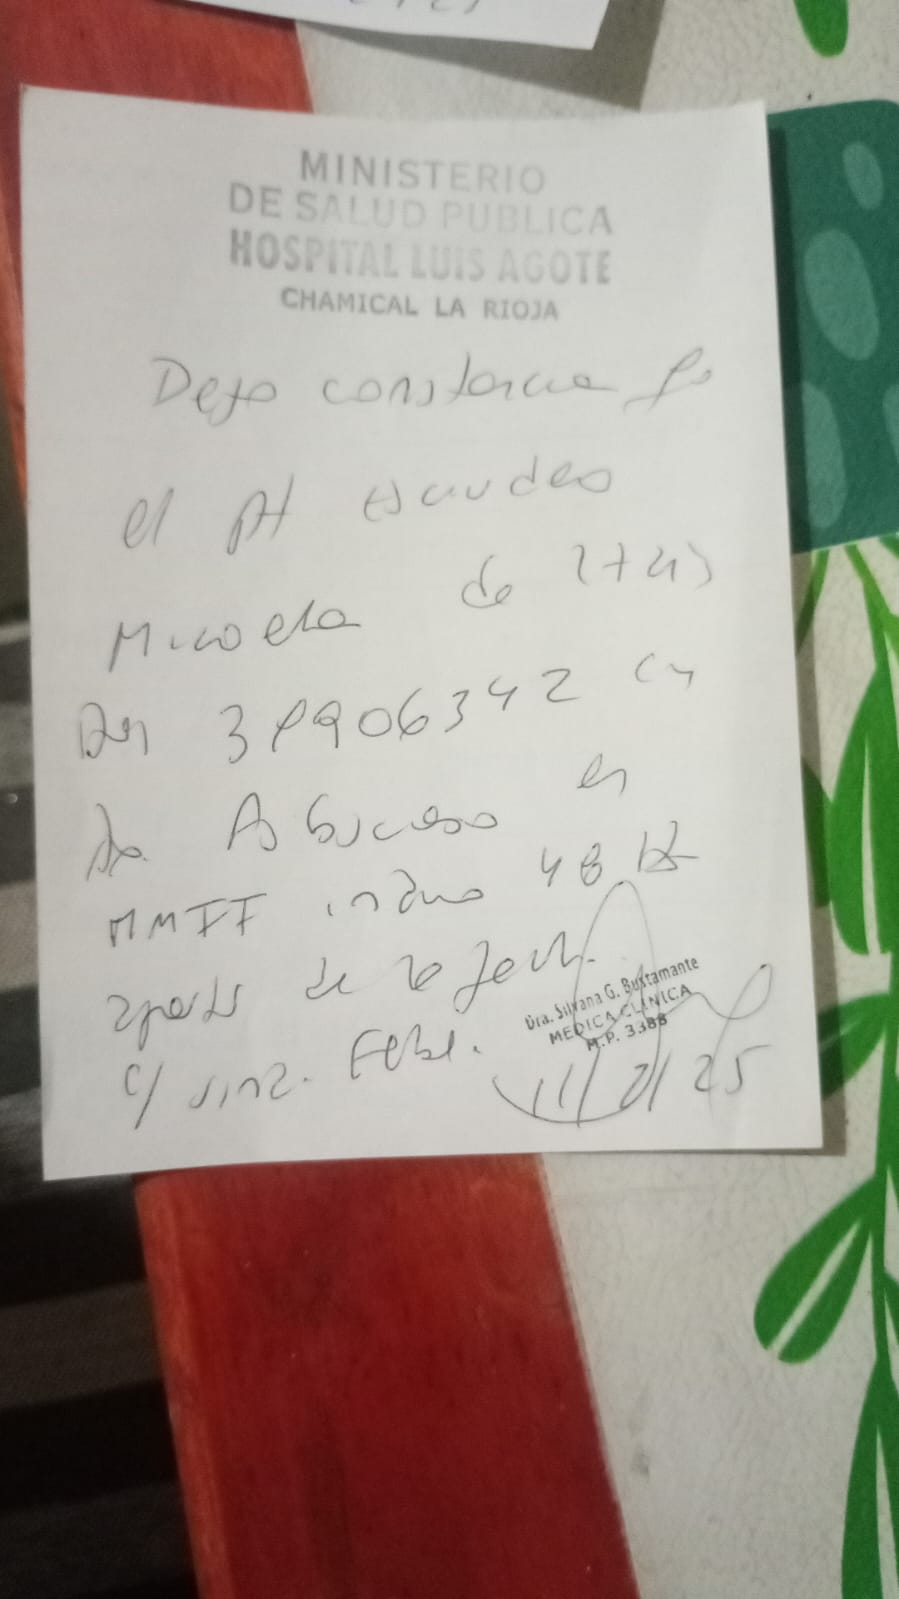 MINISTERIO
DE SALUD PUBLICA
HOSPITAL LUIS AGOTE
CHAMICAL LA RIOJA
Dejo constancia
el pt
Micaela de
DNI 38906342 cn
dx Absceso en
MMII indico 48 hs
a partir de la fecha.
c/ sind. Febril.
Dra. Silvana G. Bustamante
MEDICA CLINICA
M.P. 3388